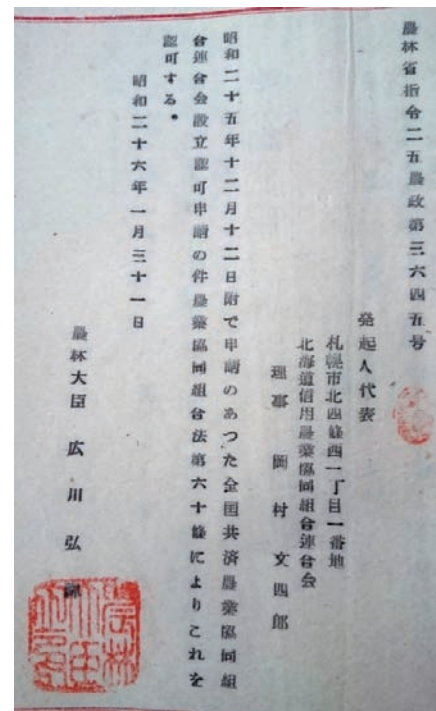 農林省指令二五農政第三六四五号
発起人代表
札幌市北四條西一丁目一番地
北海道信用農業協同組合連合会
理事 岡村文四郎
昭和二十五年十二月十二日附で申請のあつた全国共済農業協同組
合連合会設立認可申請の件農業協同組合法第六十條によりこれを
認可する。
昭和二十六年一月三十一日
農林大臣 広川弘禪
農林大臣之印